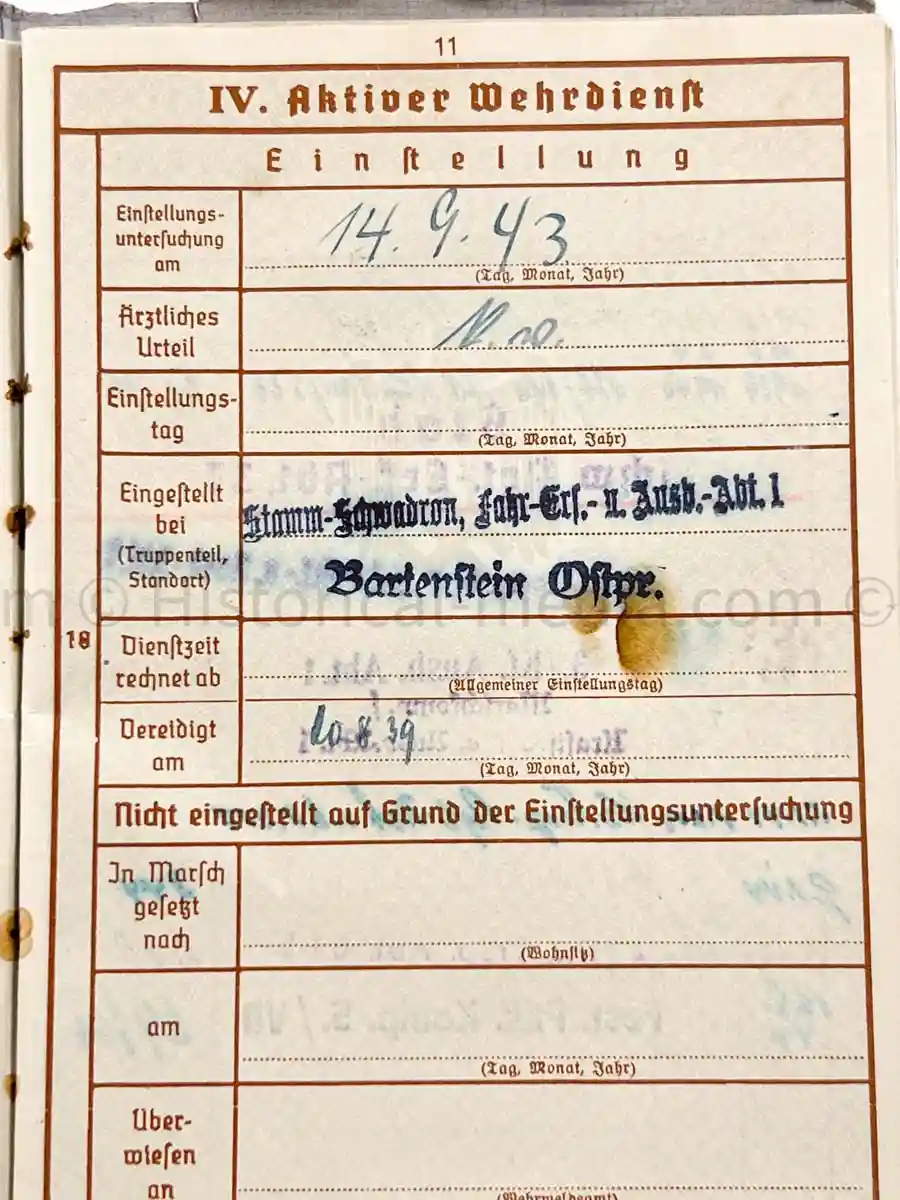 11
IV. Aktiver Wehrdienst
Einstellung
Einstellungs-
untersuchung
am
14. 9. 43
(Tag, Monat, Jahr)
Ärztliches
Urteil
Einstellungs-
tag
(Tag, Monat, Jahr)
Eingestellt
bei
(Truppenteil,
Standort)
Stamm-Schwadron, Fahr-Ers.- u. Ausb.-Abt. 1
Bartenstein Ostpr.
© Historical-media.com ©
18
Dienstzeit
rechnet ab
(Allgemeiner Einstellungstag)
Vereidigt
am
20 8 39
(Tag, Monat, Jahr)
Nicht eingestellt auf Grund der Einstellungsuntersuchung
In Marsch
gesetzt
nach
(Wohnsitz)
am
(Tag, Monat, Jahr)
Über-
wiesen
an
(Wehrmeldeamt)